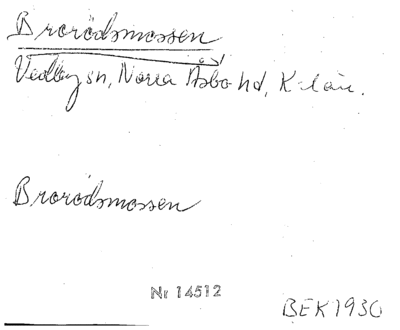 Brorödsmossen
Vedby sn, Norra Åsbo hd, K-län.
Brorödsmossen
Nr 14512
BEK 1930